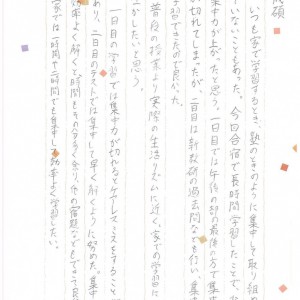 いつも家で学習するとき、塾のときのように集中して取り組め
ていないこともあった。今回合宿で長時間学習したことで、
集中力が上がったと思う。一日目では午後の部の最後の方で集中
が切れてしまったが、二日目は新教研の過去問などでも行い、集中
学習できたので良かった。
普段の授業より実際の生活リズムに近く、家での学習に
かしたいと思う。
一日目の学習では集中力が切れるとケアレスミスをすること
あり、二日目のテストでは集中して早く解くように努めた。集中
効率よく解くと時間もその分多く余り、他の宿題などもできて良
家では一時間や二時間でも集中して効率よく学習したい。